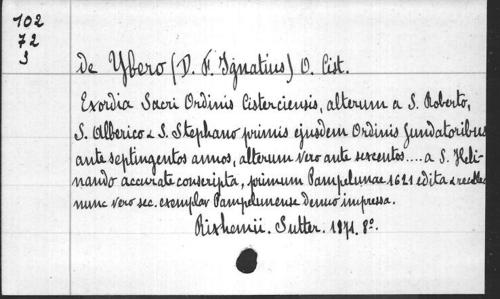 102
72
3
de Ybero (D. F. Ignatius) O. Cist.
Exordia Sacri Ordinis Cisterciensis, alterum a S. Roberto,
S. Alberico & S. Stephano primis ejusdem Ordinis fundatoribus
ante septingentos annos, alterum vero ante sexcentos .... a S. Heli-
nando accurate conscripta, primum Pampelunae 1621 edita &
nunc vero sec. exemplar Pampelunense denuo impressa.
Rixhemii. Sutter. 1871. 8º.